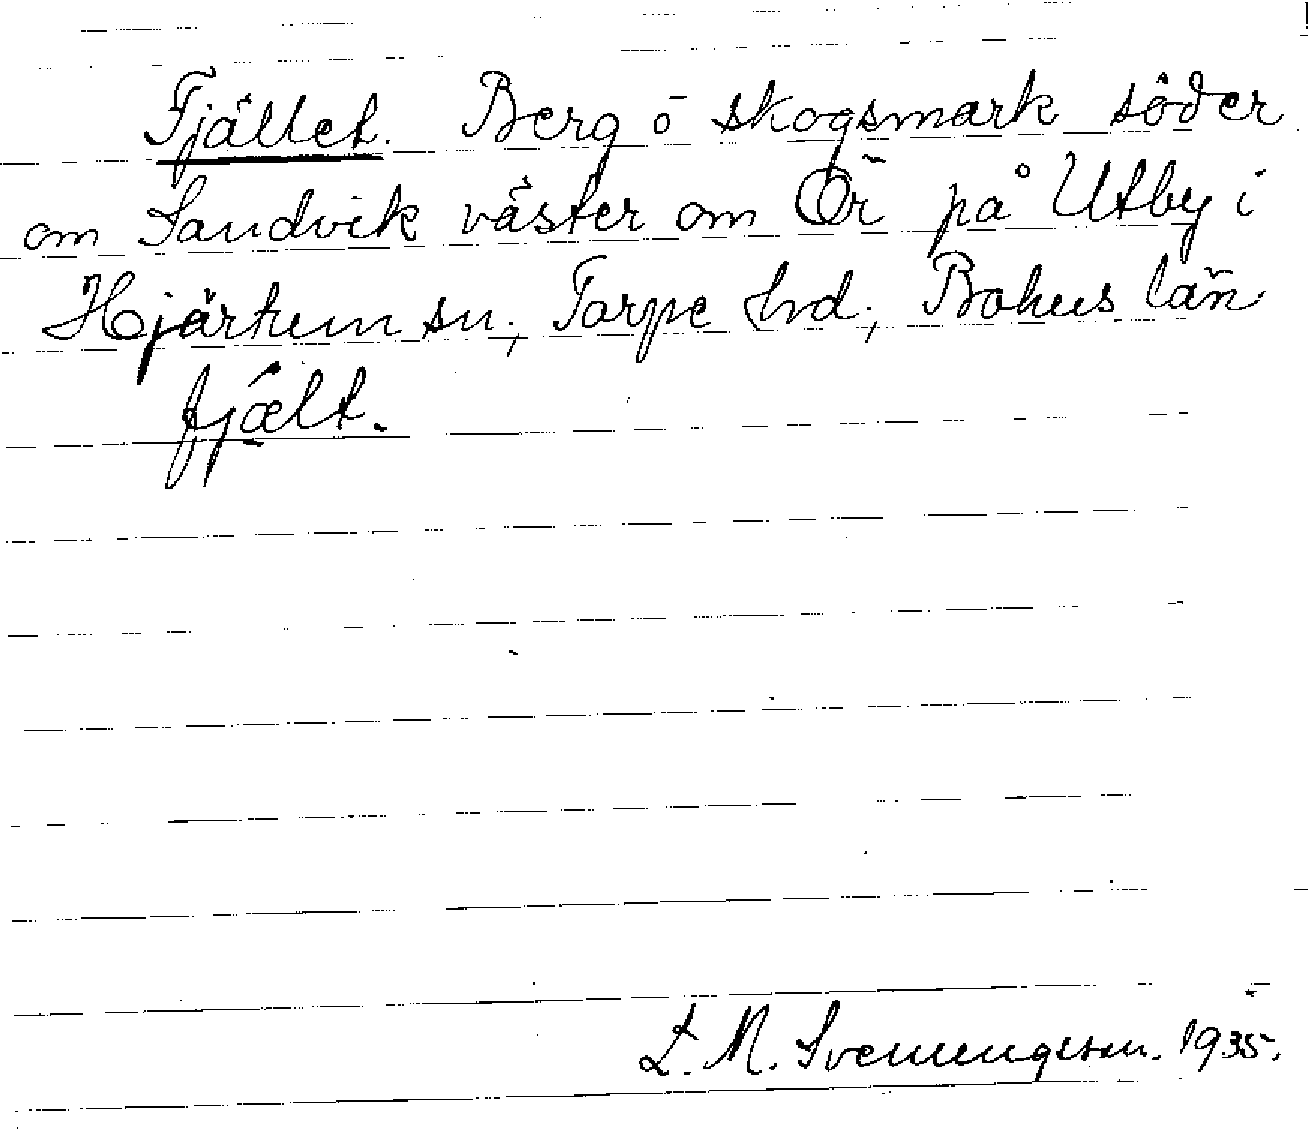 Fjället. Berg o skogsmark söder
om Sandvik väster om Ör på Utby i
Hjärtum sn, Torpe hrd, Bohus län
fjælt.
L. M. Svenungsson. 1935.